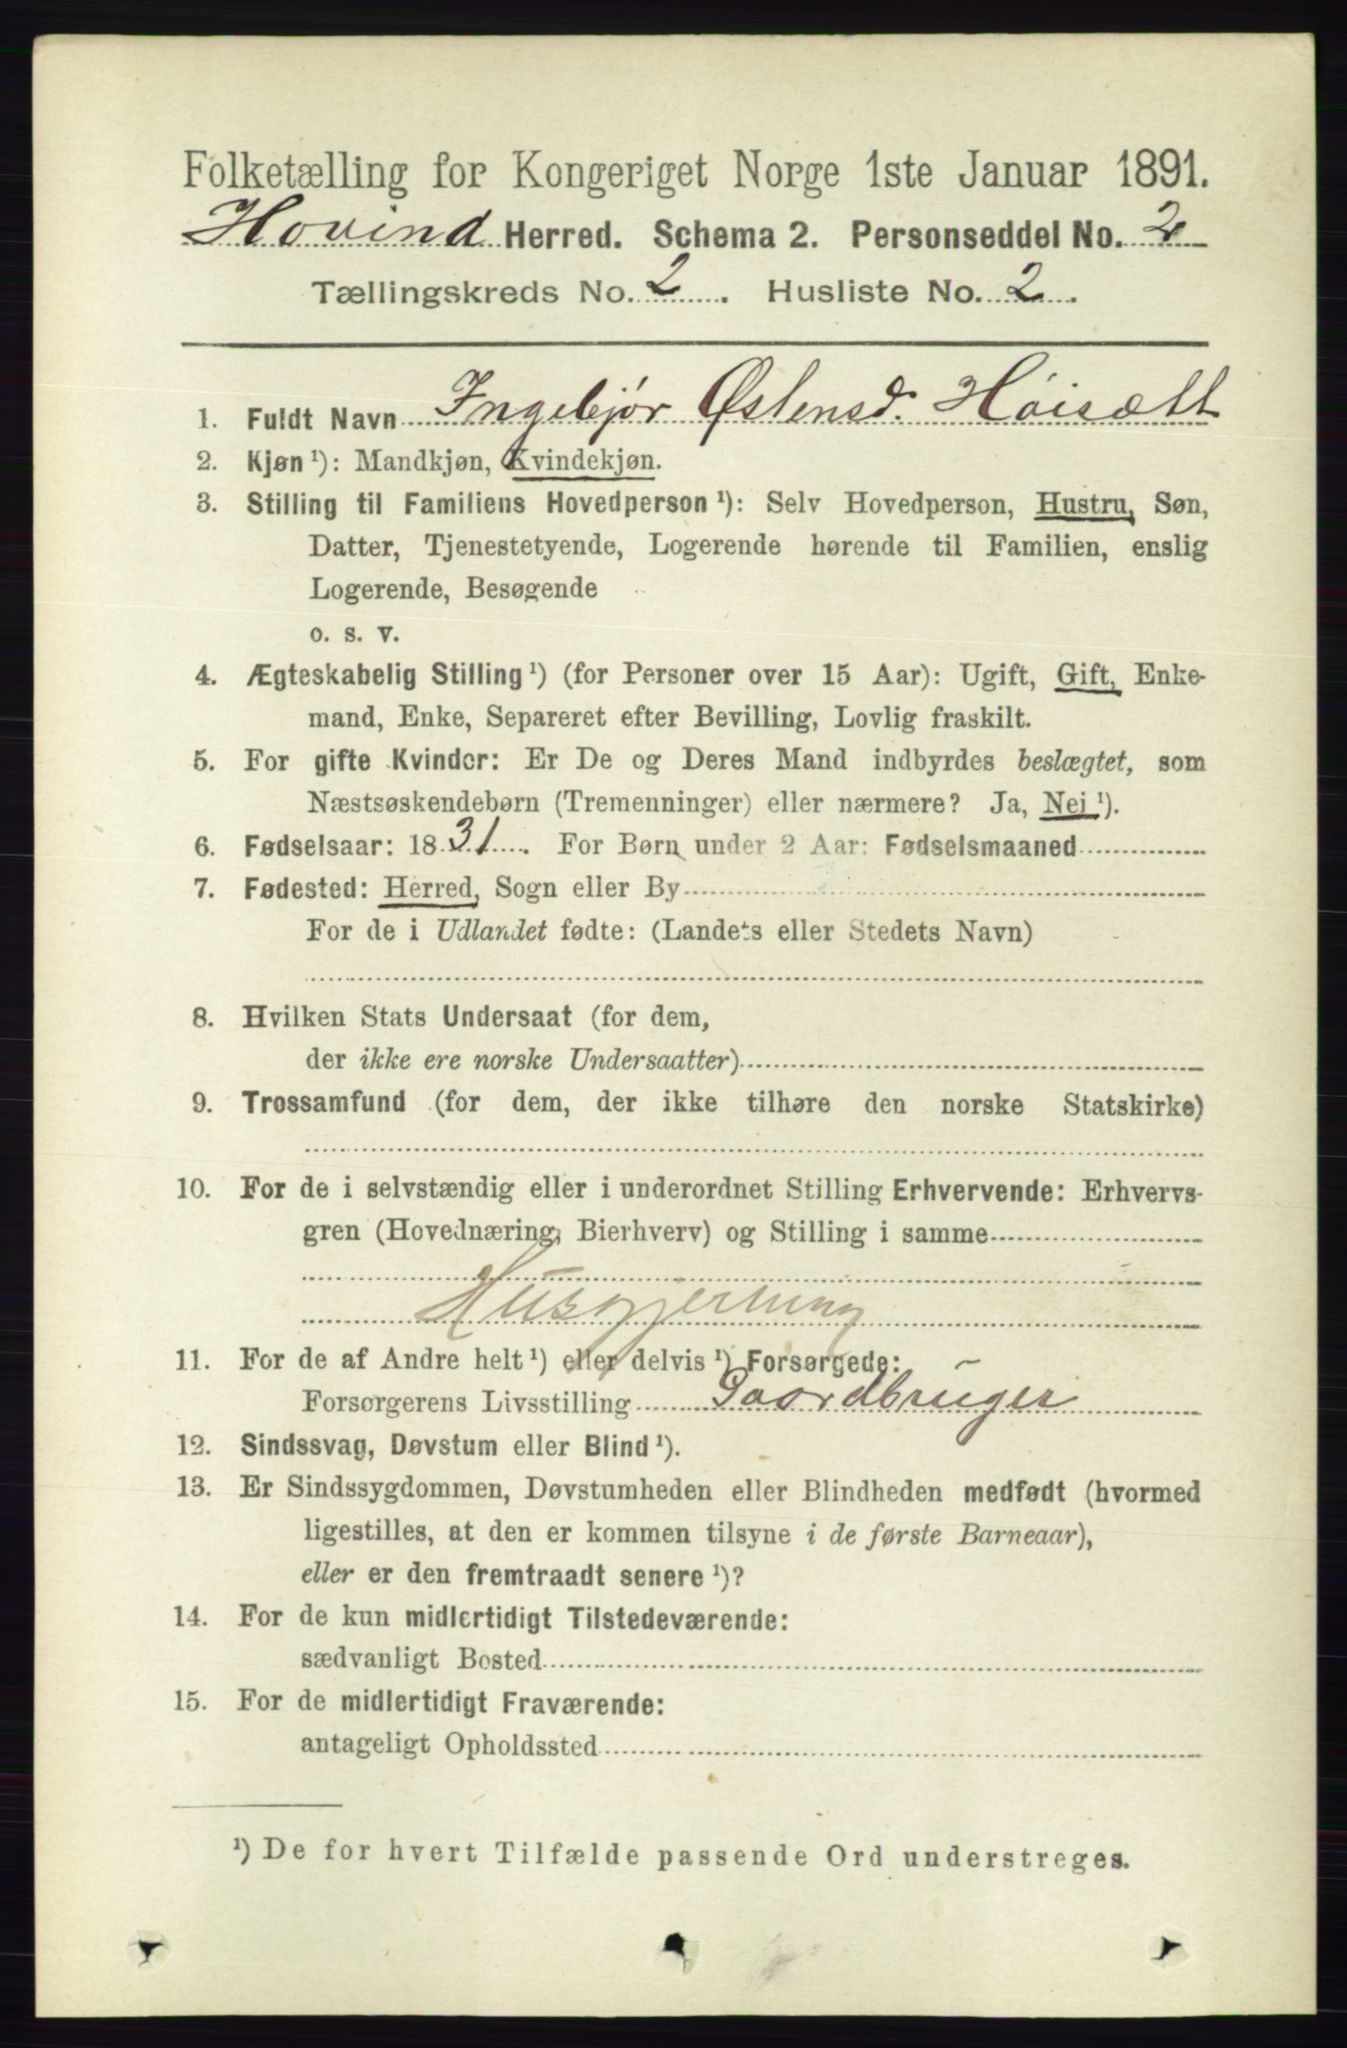 Folketælling for Kongeriget Norge 1ste Januar 1891.
Hovind Herred. Schema 2. Personseddel No. 2
Tællingskreds No. 2. Husliste No. 2.
1. Fuldt Navn Ingebjør Østensd. Høisætt
2. Kjøn ¹): Mandkjøn, Kvindekjøn.
3. Stilling til Familiens Hovedperson ¹): Selv Hovedperson, Hustru, Søn,
Datter, Tjenestetyende, Logerende hørende til Familien, enslig
Logerende, Besøgende
o. s. v.
4. Ægteskabelig Stilling ¹) (for Personer over 15 Aar): Ugift, Gift, Enke-
mand, Enke, Separeret efter Bevilling, Lovlig fraskilt.
5. For gifte Kvinder: Er De og Deres Mand indbyrdes beslægtet, som
Næstsøskendebørn (Tremenninger) eller nærmere? Ja, Nei ¹).
6. Fødselsaar: 1831. For Børn under 2 Aar: Fødselsmaaned
7. Fødested: Herred, Sogn eller By
For de i Udlandet fødte: (Landets eller Stedets Navn)
8. Hvilken Stats Undersaat (for dem,
der ikke ere norske Undersaatter)
9. Trossamfund (for dem, der ikke tilhøre den norske Statskirke)
10. For de i selvstændig eller i underordnet Stilling Erhvervende: Erhvervs-
gren (Hovednæring, Bierhverv) og Stilling i samme
Husgjerning
11. For de af Andre helt ¹) eller delvis ¹) Forsørgede:
Forsørgerens Livsstilling Gaardbruger
12. Sindssvag, Døvstum eller Blind ¹).
13. Er Sindssygdommen, Døvstumheden eller Blindheden medfødt (hvormed
ligestilles, at den er kommen tilsyne i de første Barneaar),
eller er den fremtraadt senere ¹)?
14. For de kun midlertidigt Tilstedeværende:
sædvanligt Bosted
15. For de midlertidigt Fraværende:
antageligt Opholdssted
¹) De for hvert Tilfælde passende Ord understreges.